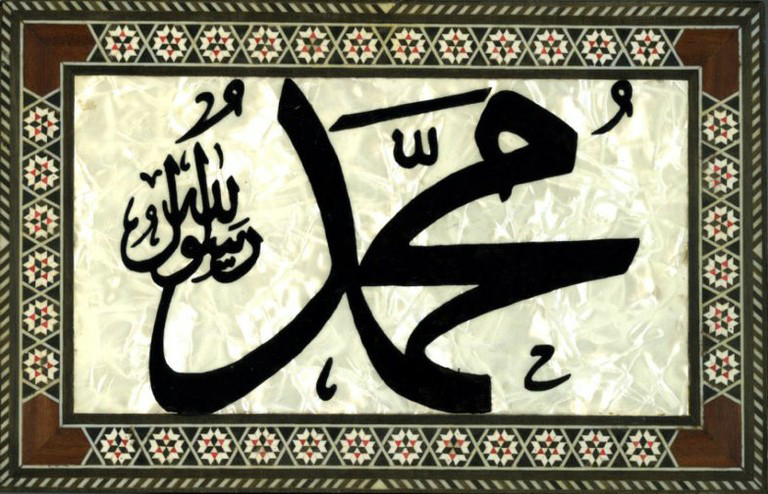 مُحَمَّدٌ
رسول الله